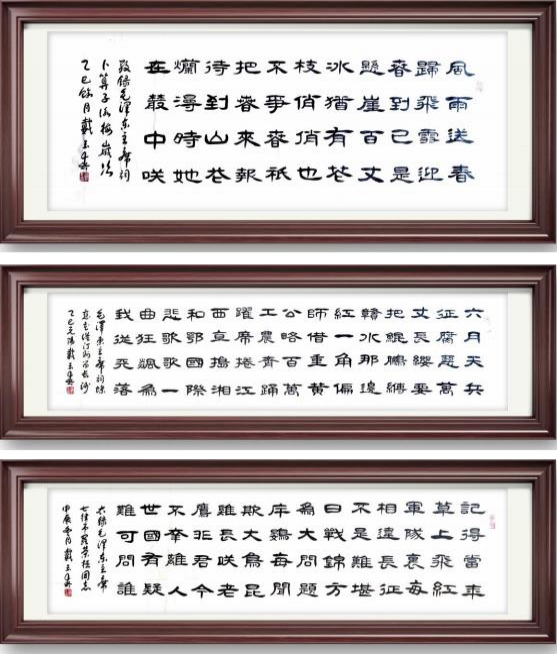 風雨送春
歸飛雪迎
春到已是
懸崖百丈
冰猶有花
枝俏俏也
不爭春祇
把春來報
待到山花
爛漫時她
在叢中咲
敬錄毛澤東主席詞
卜算子詠梅歲次
乙巳餘月戴玉
六月天兵
征腐惡萬
丈長纓要
把鯤鵬縛
贛水那邊
紅一角偏
師借重黃
公略百萬
工農齊踴
躍席捲江
西直搗湘
和鄂國際
悲歌歌一
曲狂飆為
我從天落
毛澤東主席詞蝶
戀花從汀州向長沙
乙巳元陽戴玉
記得當年
草上飛紅
軍隊裏每
相違長征
不是難堪
日戰錦方
為大問題
斥鷃每聞
欺大鳥昆
雞長咲老
鷹非君今
不幸離人
世國有疑
難可問誰
錄毛澤東主席
七律吊羅榮桓同志
甲辰月戴玉